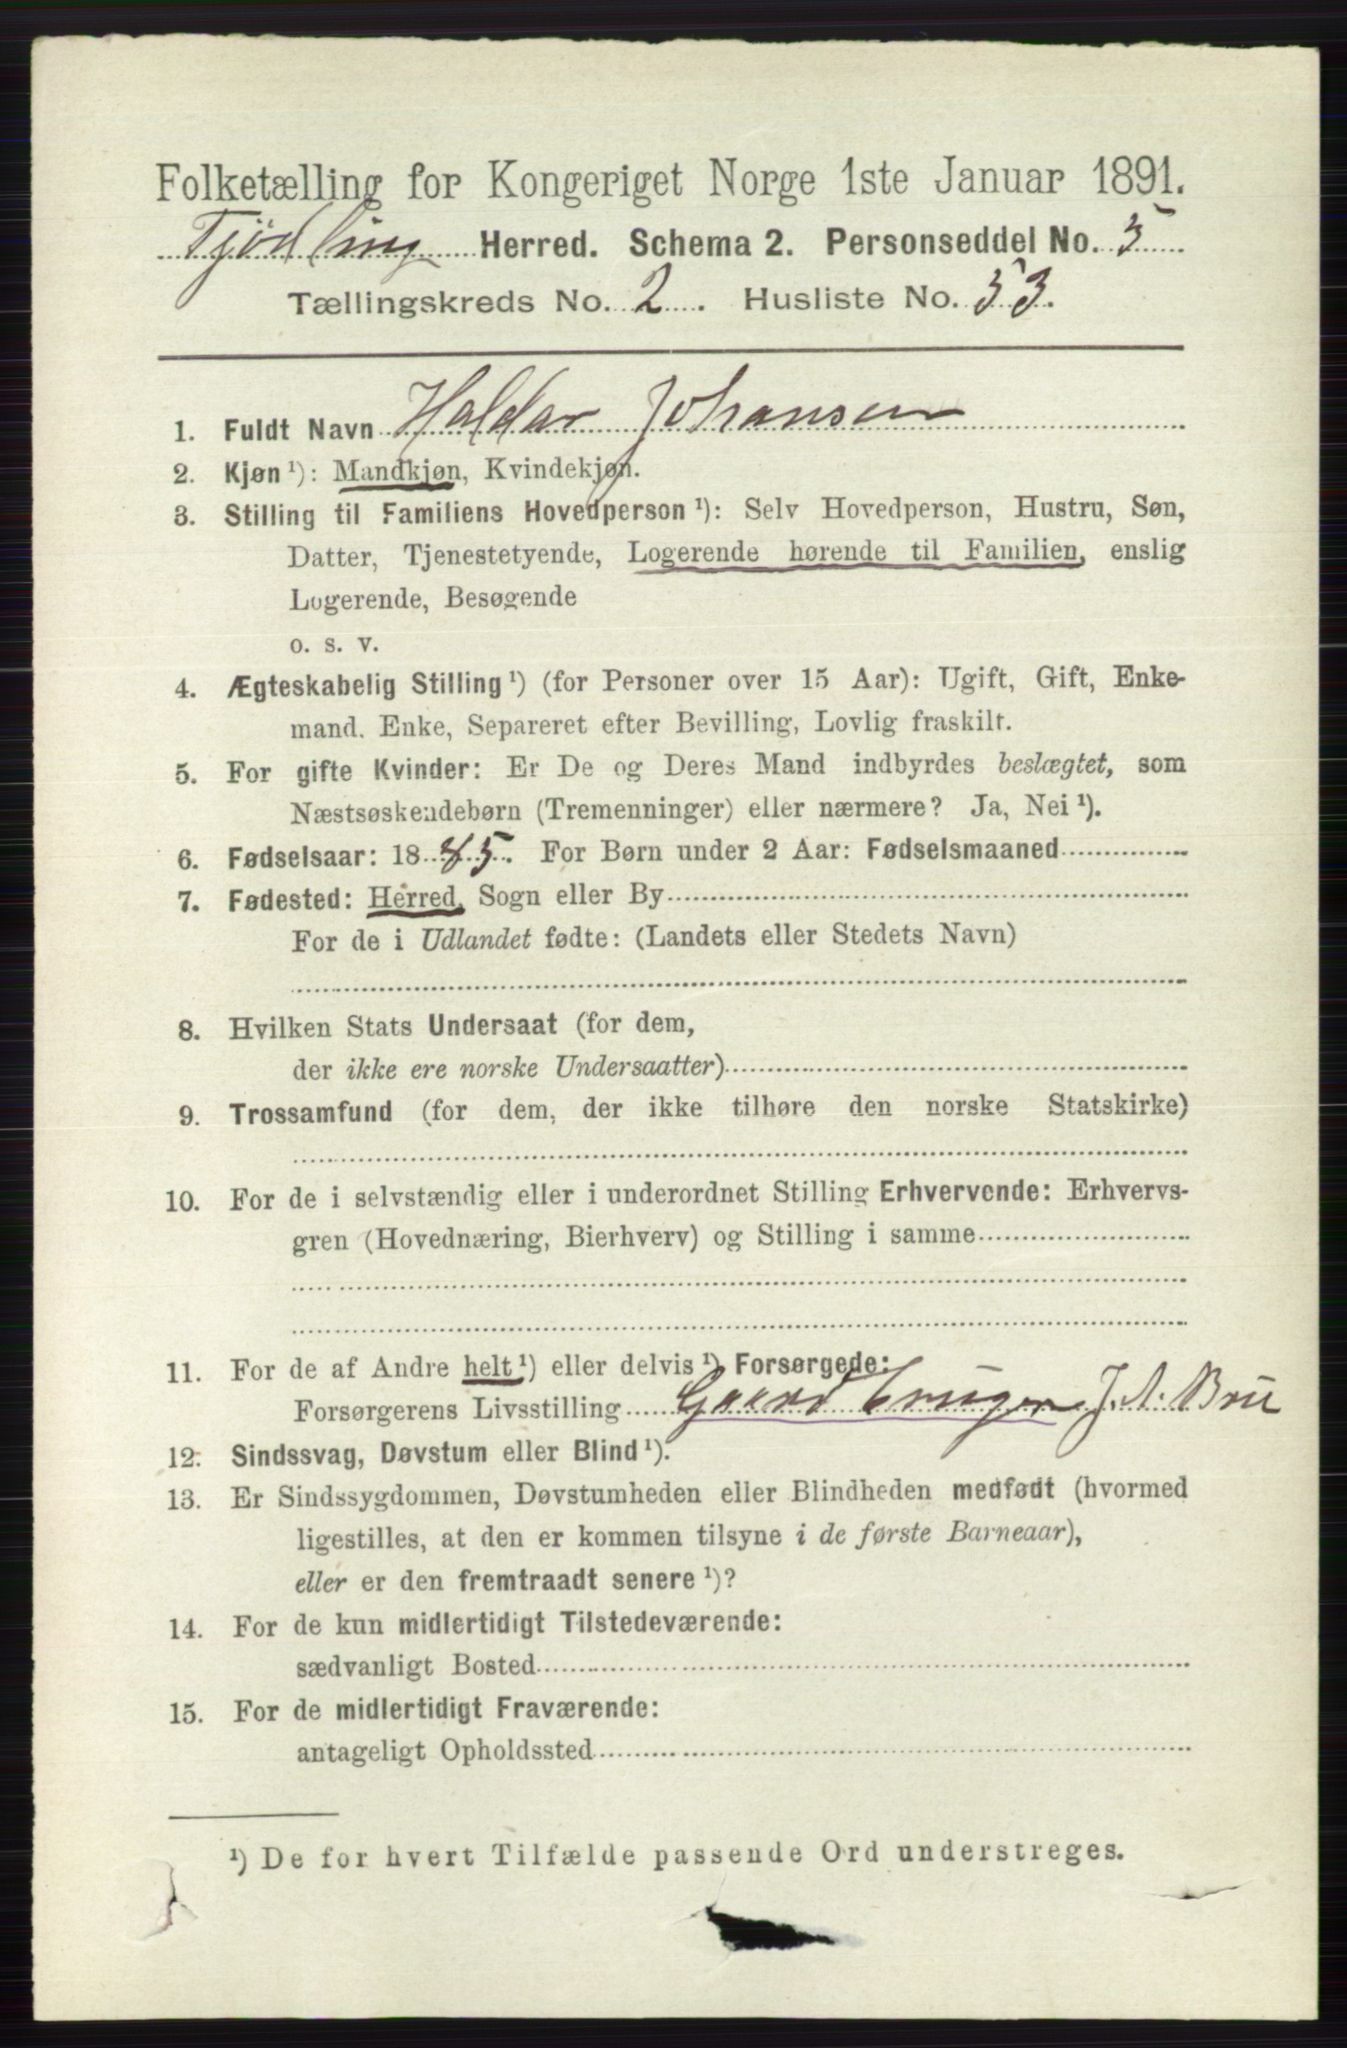 Folketælling for Kongeriget Norge 1ste Januar 1891.
Tjødling Herred. Schema 2. Personseddel No. 5
Tællingskreds No. 2. Husliste No. 53.
1. Fuldt Navn Haldar Johansen
2. Kjøn ¹): Mandkjøn, Kvindekjøn.
3. Stilling til Familiens Hovedperson ¹): Selv Hovedperson, Hustru, Søn,
Datter, Tjenestetyende, Logerende hørende til Familien, enslig
Logerende, Besøgende
o. s. v.
4. Ægteskabelig Stilling ¹) (for Personer over 15 Aar): Ugift, Gift, Enke-
mand. Enke, Separeret efter Bevilling, Lovlig fraskilt.
5. For gifte Kvinder: Er De og Deres Mand indbyrdes beslægtet, som
Næstsøskendebørn (Tremenninger) eller nærmere? Ja, Nei ¹).
6. Fødselsaar: 1885. For Børn under 2 Aar: Fødselsmaaned
7. Fødested: Herred, Sogn eller By
For de i Udlandet fødte: (Landets eller Stedets Navn)
8. Hvilken Stats Undersaat (for dem,
der ikke ere norske Undersaatter)
9. Trossamfund (for dem, der ikke tilhøre den norske Statskirke)
10. For de i selvstændig eller i underordnet Stilling Erhvervende: Erhvervs-
gren (Hovednæring, Bierhverv) og Stilling i samme
11. For de af Andre helt ¹) eller delvis ¹) Forsørgede:
Forsørgerens Livsstilling Gaardbruger J. A. Bru
12. Sindssvag, Døvstum eller Blind ¹).
13. Er Sindssygdommen, Døvstumheden eller Blindheden medfødt (hvormed
ligestilles, at den er kommen tilsyne i de første Barneaar),
eller er den fremtraadt senere ¹)?
14. For de kun midlertidigt Tilstedeværende:
sædvanligt Bosted
15. For de midlertidigt Fraværende:
antageligt Opholdssted
¹) De for hvert Tilfælde passende Ord understreges.